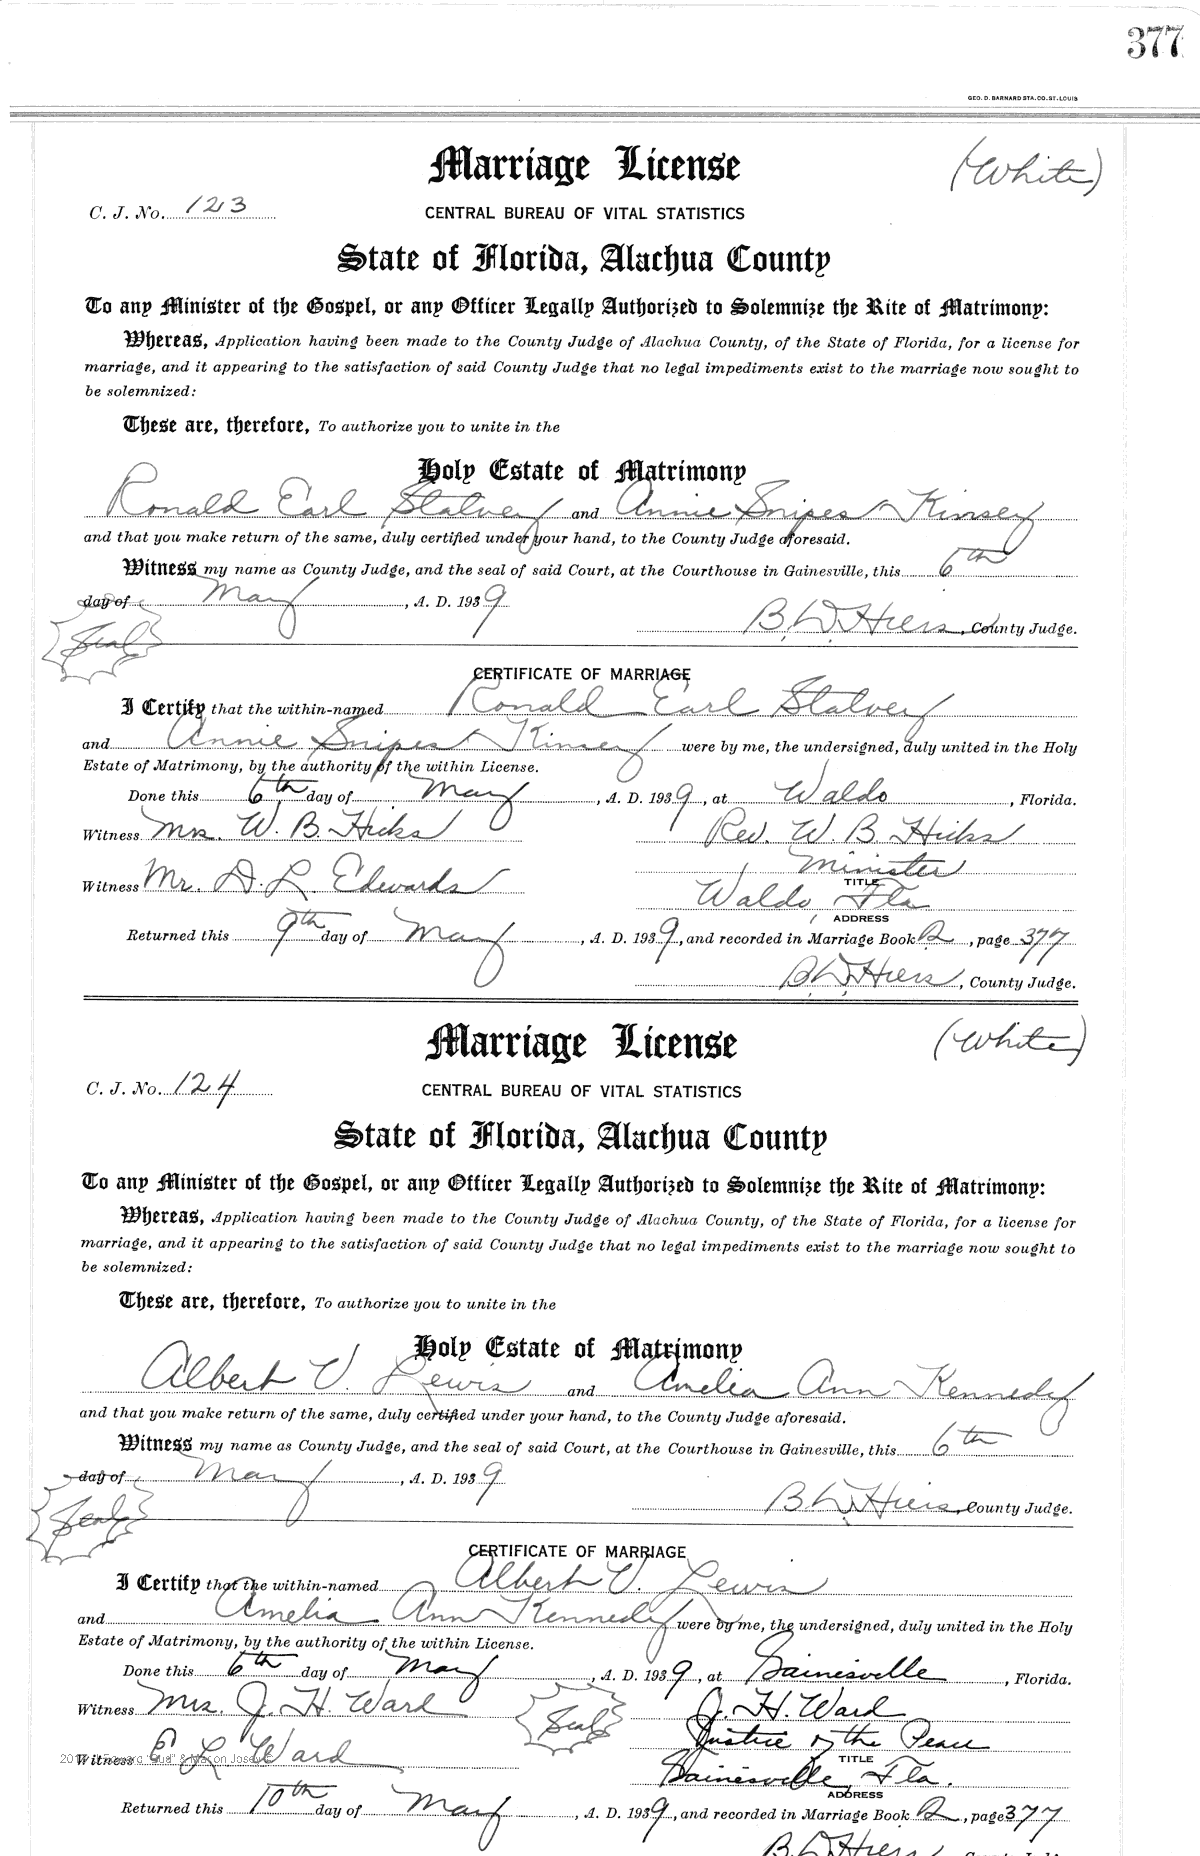 377
GEO. D. BARNARD STA. CO. ST. LOUIS
Marriage License (White)
C. J. No. 123 CENTRAL BUREAU OF VITAL STATISTICS
State of Florida, Alachua County
To any Minister of the Gospel, or any Officer Legally Authorized to Solemnize the Rite of Matrimony:
Whereas, Application having been made to the County Judge of Alachua County, of the State of Florida, for a license for
marriage, and it appearing to the satisfaction of said County Judge that no legal impediments exist to the marriage now sought to
be solemnized:
These are, therefore, To authorize you to unite in the
Holy Estate of Matrimony
Ronald Earl Stalvey and Annie Snipes Kinsey
and that you make return of the same, duly certified under your hand, to the County Judge aforesaid.
Witness my name as County Judge, and the seal of said Court, at the Courthouse in Gainesville, this 6th
day of May, A. D. 1939
B. D. Hiers, County Judge.
Seal
CERTIFICATE OF MARRIAGE
I Certify that the within-named Ronald Earl Stalvey
and Annie Snipes Kinsey were by me, the undersigned, duly united in the Holy
Estate of Matrimony, by the authority of the within License.
Done this 6th day of May, A. D. 1939, at Waldo, Florida.
Witness Mrs. W. B. Hicks Rev. W. B. Hicks
Minister
Witness Mr. D. L. Edwards TITLE
Waldo, Fla
ADDRESS
Returned this 9th day of May, A. D. 1939, and recorded in Marriage Book R, page 377
B. D. Hiers, County Judge.
Marriage License (White)
C. J. No. 124 CENTRAL BUREAU OF VITAL STATISTICS
State of Florida, Alachua County
To any Minister of the Gospel, or any Officer Legally Authorized to Solemnize the Rite of Matrimony:
Whereas, Application having been made to the County Judge of Alachua County, of the State of Florida, for a license for
marriage, and it appearing to the satisfaction of said County Judge that no legal impediments exist to the marriage now sought to
be solemnized:
These are, therefore, To authorize you to unite in the
Holy Estate of Matrimony
Albert V. Lewis and Amelia Ann Kennedy
and that you make return of the same, duly certified under your hand, to the County Judge aforesaid.
Witness my name as County Judge, and the seal of said Court, at the Courthouse in Gainesville, this 6th
day of May, A. D. 1939
B. D. Hiers, County Judge.
Seal
CERTIFICATE OF MARRIAGE
I Certify that the within-named Albert V. Lewis
and Amelia Ann Kennedy were by me, the undersigned, duly united in the Holy
Estate of Matrimony, by the authority of the within License.
Done this 6th day of May, A. D. 1939, at Gainesville, Florida.
Witness Mrs. J. H. Ward Seal J. H. Ward
Justice of the Peace
Witness E L Ward TITLE
Gainesville, Fla.
ADDRESS
Returned this 10th day of May, A. D. 1939, and recorded in Marriage Book R, page 377
B. D. Hiers, County Judge